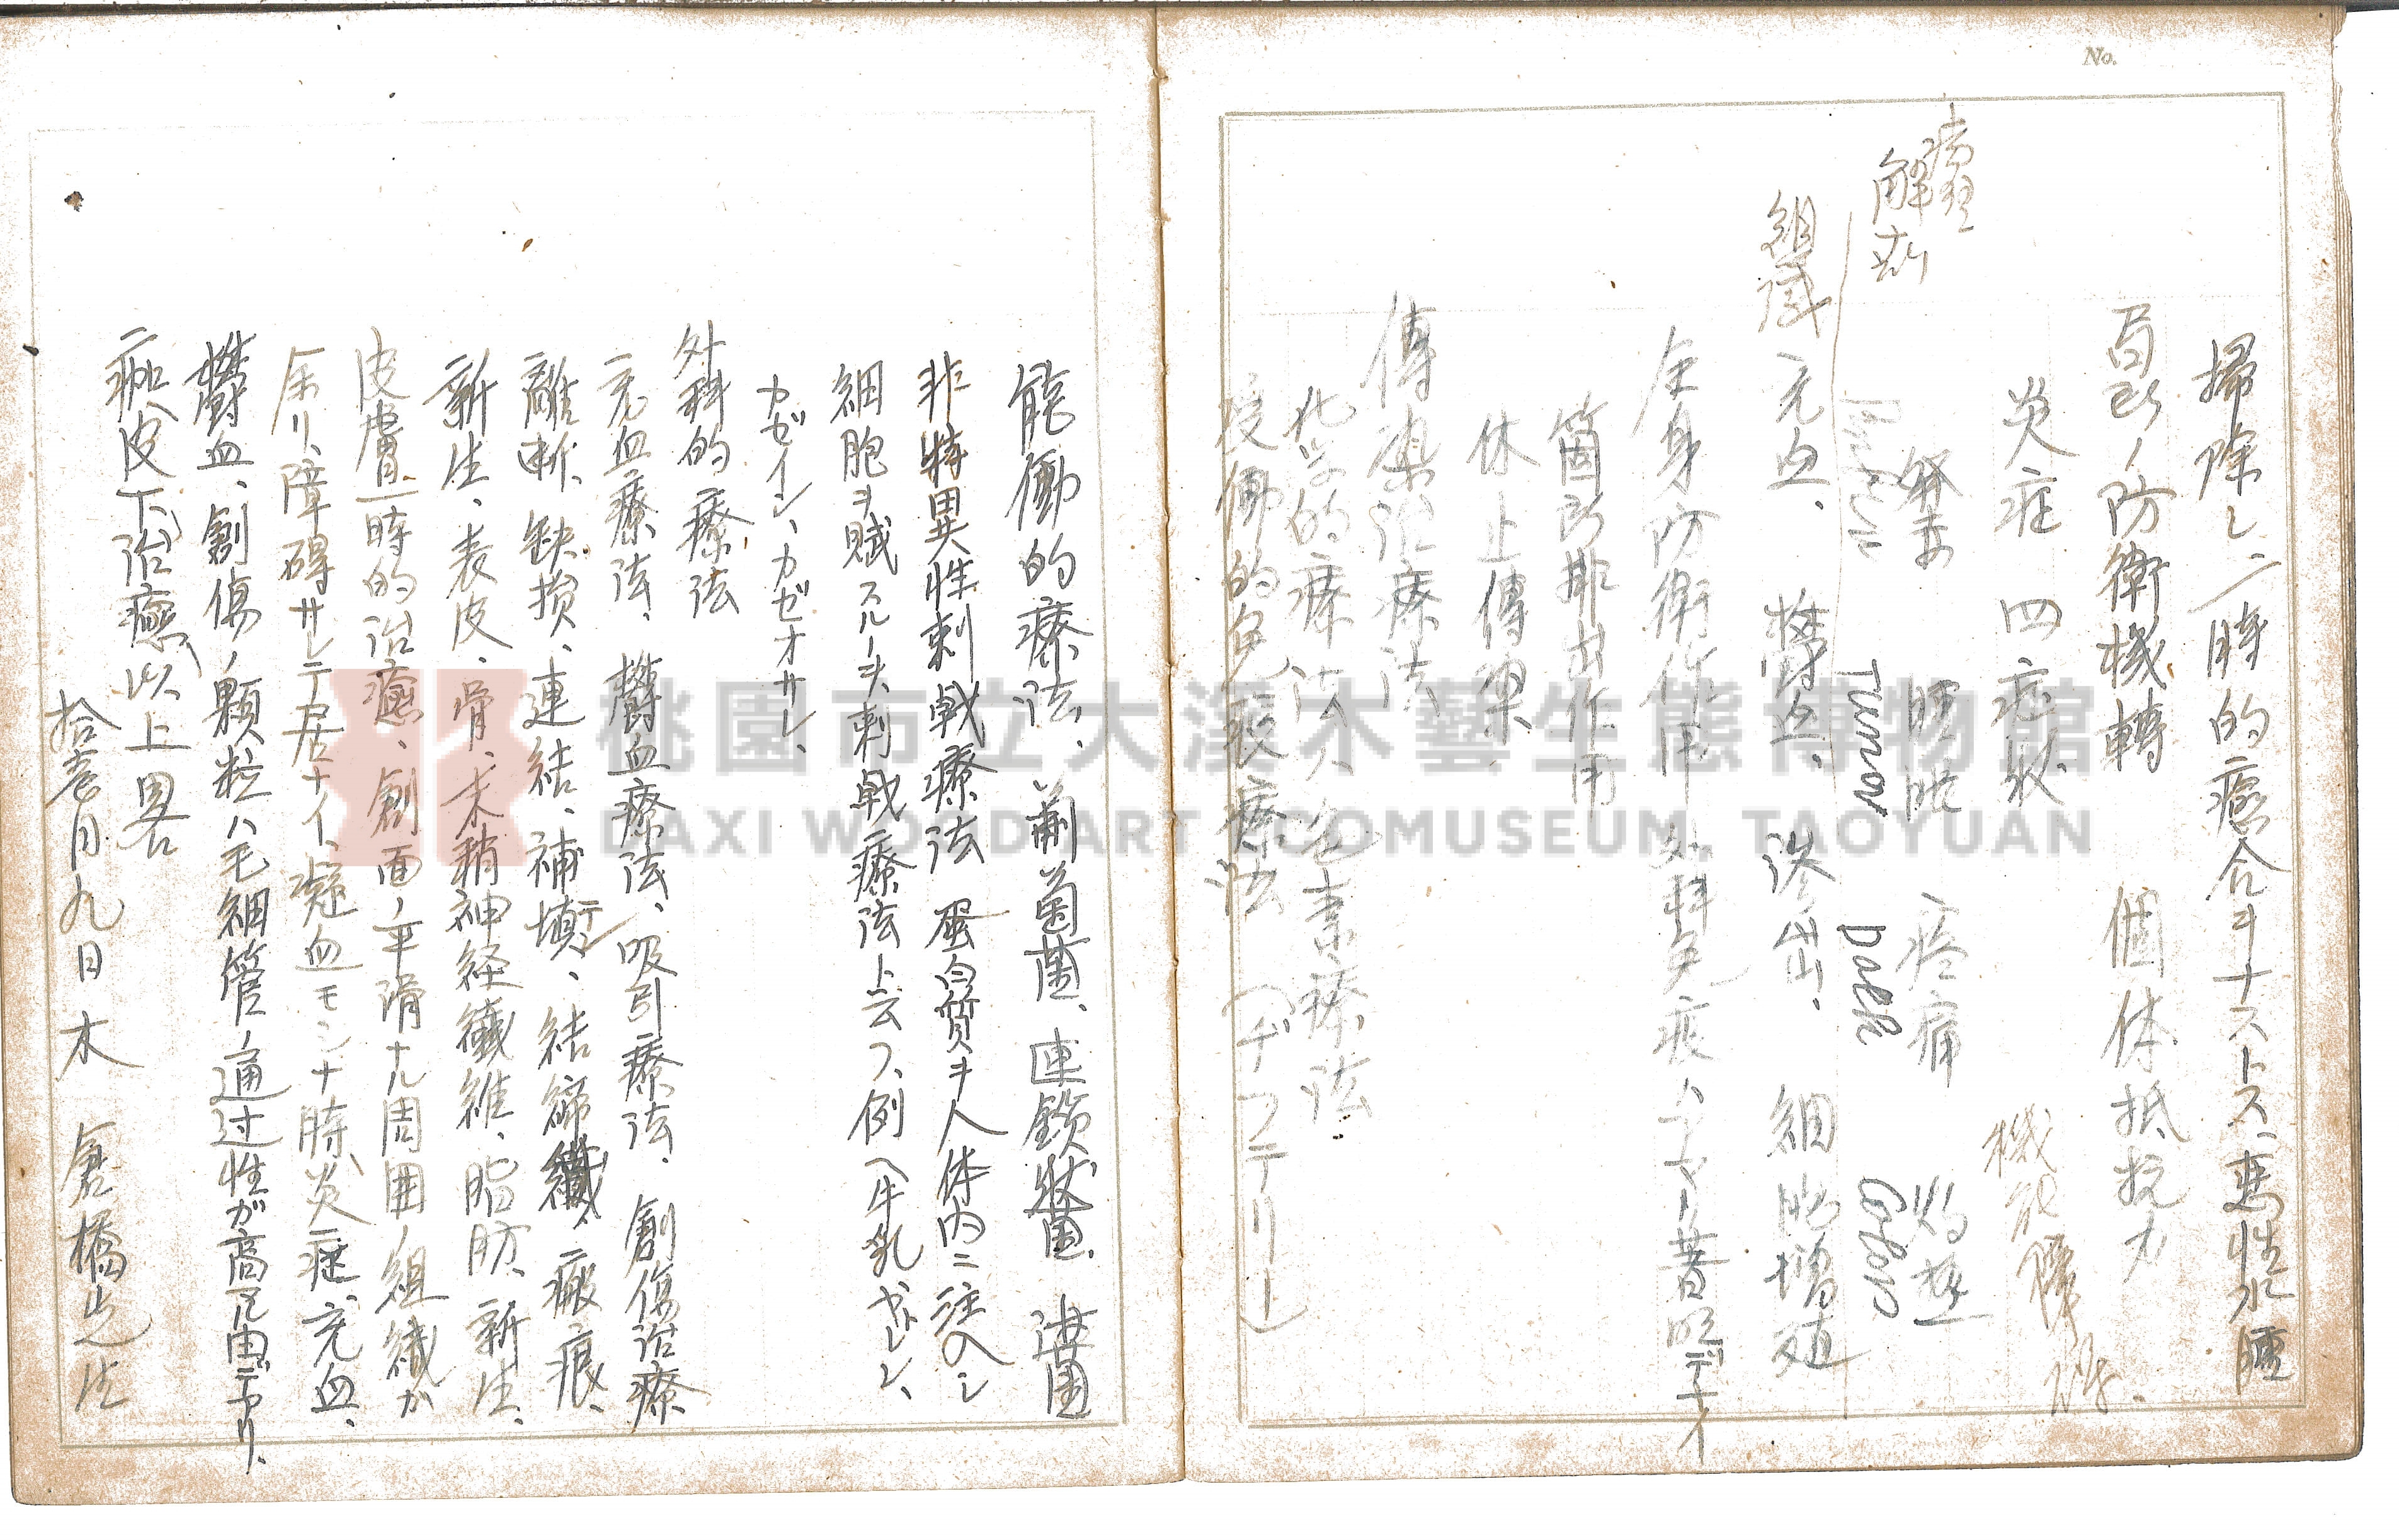 No.
掃除シ一時的癒合ヲナストス、悪性水腫
局所ノ防衛機轉 個体抵抗力
炎症 四症状 機能障碍.
病理
解剖 発赤 腫脹 疼痛 灼熱
Tumor Dolor Color
組織 充血、鬱血、滲出、細胞増殖
全身防衛作用 外科免疫
箇所排出作用
休止傳染
傳染治療法
化学的療法 色素療法
受働的免疫療法 (ヂフテリー)
能働的療法、葡萄菌、連鎖状菌、
非特異性刺戟療法 蛋白質ヲ人体内ニ注入シ
細胞ヲ賦スルノヲ刺戟療法ト云フ、例ヘ牛乳
カゼイン、カゼオサン、
外科的療法
充血療法、鬱血療法、吸引療法、創傷治療
離断、缺損、連結、補填、結締織、瘢痕、
新生、表皮、骨、末梢神経纖維、脂肪、新生、
皮膚一時的治癒、創面ノ平滑ナル周囲ノ組織ガ
余リ障碍サレテ居ナイ、凝血モシナ時、炎症、充血、
鬱血、創傷ノ顆粒ハ毛細管ノ通过性ガ高
痂皮下治癒以上畧
拾壱月九日木 倉橋
桃園市立大溪木藝生態博物館
DAXI WOOD ART ECOMUSEUM, TAOYUAN